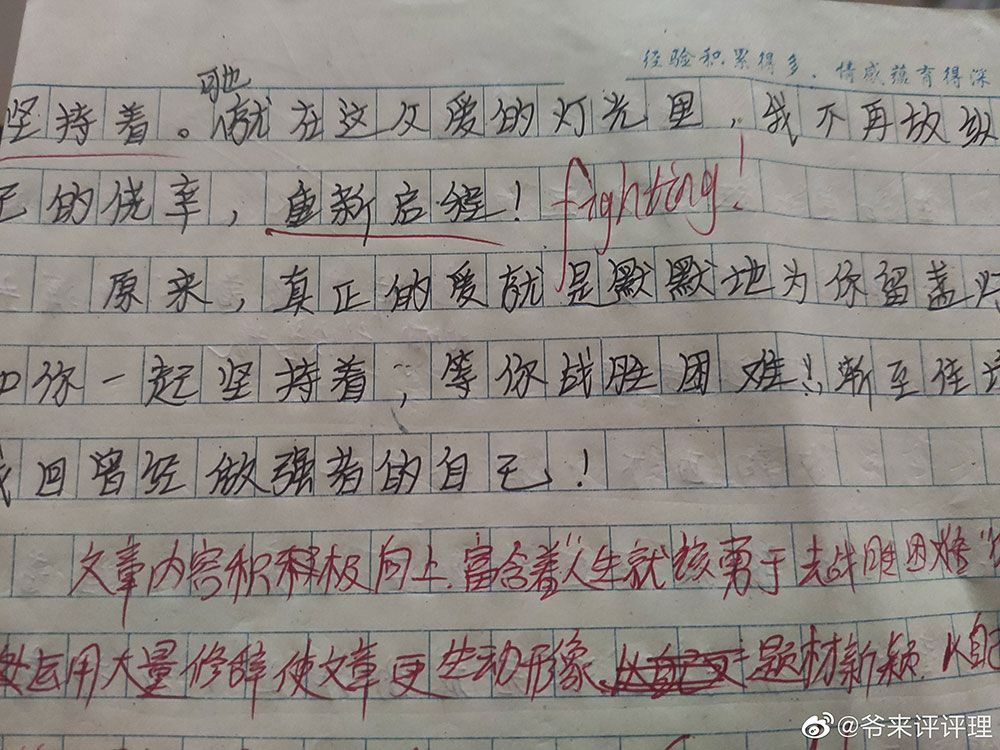 经验积累得多，情感蕴育得深
她
坚持着。就在这么爱的灯光里，我不再放纵
己的侥幸，重新启程！ fighting!
原来，真正的爱就是默默地为你留盏灯
你一起坚持着，等你战胜困难！渐至佳
回曾经做强者的自己！
文章内容积极向上，富含着“人生就该勇于去战胜困难”
处运用大量修辞使文章更生动形象，题材新颖，从自
@爷来评评理